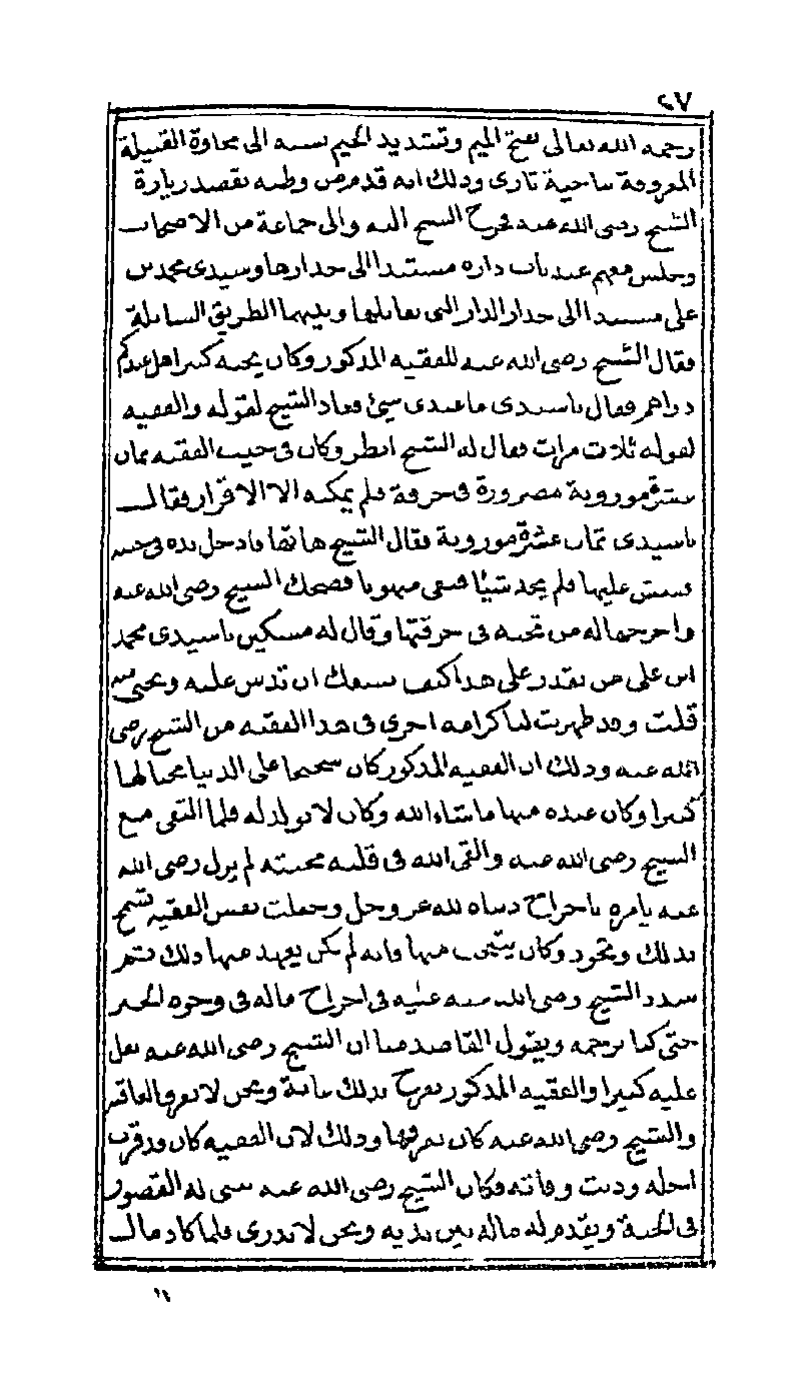 ٢٧
رحمه الله تعالى بفتح الميم وتشديد الجيم نسبة الى مجاوة القبيلة
المعروفة بناحية تازى وذلك انه قدم من وطنه بقصد زيارة
الشيخ رضى الله عنه فخرج الشيخ اليه والى جماعة من الاصحاب
وجلس معهم عند باب داره مستندا الى جدارها وسيدى محمد بن
على مستندا الى جدار الدار التى تقابلها وبينهما الطريق السابلة
فقال الشيخ رضى الله عنه للفقيه المذكور وكان يحبه كثيرا هل عندكم
دراهم فقال يا سيدى ما عندى شئ فعاد الشيخ لقوله والفقيه
لقوله ثلاث مرات فقال له الشيخ انظر وكان فى جيب الفقيه ثمان
عشرة موزونة مصرورة فى خرقة فلم يمكنه الا الاقرار فقال
يا سيدى ثمان عشرة موزونة فقال الشيخ هاتها فادخل يده فى جيبه
ففتش عليها فلم يجد شيئا فبقى مبهوتا فضحك الشيخ رضى الله عنه
واخرجها له من تحته فى خرقتها وقال له مسكين يا سيدى محمد
ابن على من يقدر على هذا كيف يسعك ان تدس عليه وتخبى عنه
قلت وقد ظهرت لنا كرامة اخرى فى هذا الفقيه من الشيخ رضى
الله عنه وذلك ان الفقيه المذكور كان شحيحا على الدنيا محبا لها
كثيرا وكان عنده منها ما شاء الله وكان لا يولد له فلما التقى مع
الشيخ رضى الله عنه والقى الله فى قلبه محبته لم يزل رضى الله
عنه يامره باخراج دنياه لله عز وجل وجعلت نفس الفقيه تسمح
بذلك وتجود وكان يتعجب منها فانه لم يكن يعهد منها ذلك ثم
شدد الشيخ رضى الله عنه عليه فى اخراج ماله فى وجوه الخير
حتى كنا نرحمه ويقول القاصد منا ان الشيخ رضى الله عنه ثقل
عليه كثيرا والفقيه المذكور يفرح بذلك غاية ونحن لا نعرف العاقبة
والشيخ رضى الله عنه كان يعرفها وذلك لان الفقيه كان قد قرب
اجله ودنت وفاته فكان الشيخ رضى الله عنه يبنى له القصور
فى الجنة ويقدم له ماله بين يديه ونحن لا ندرى فلما كاد مال